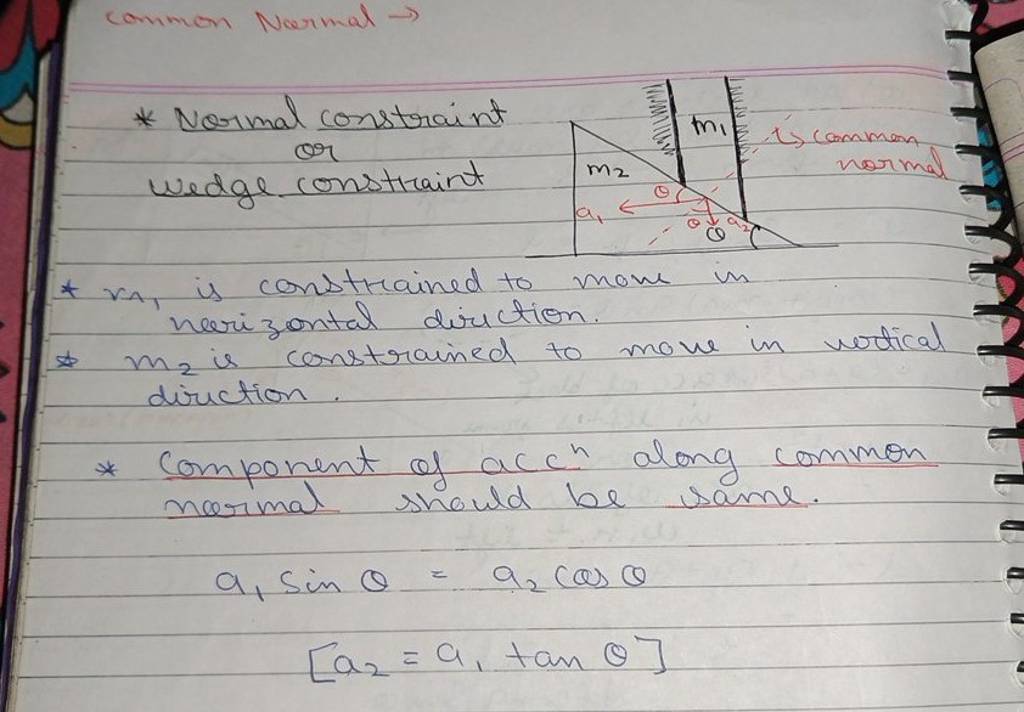 Common Normal →
* Normal constraint
or
wedge constraint
m1
m2
↳ common
normal
θ
a1
θ
a2
θ
* m1 is constrained to move in
horizontal direction.
* m2 is constrained to move in vertical
direction.
* Component of accn along common
normal should be same.
a1 sin θ = a2 cos θ
[a2 = a1 tan θ]